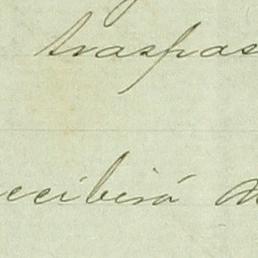 traspas
ecibirá